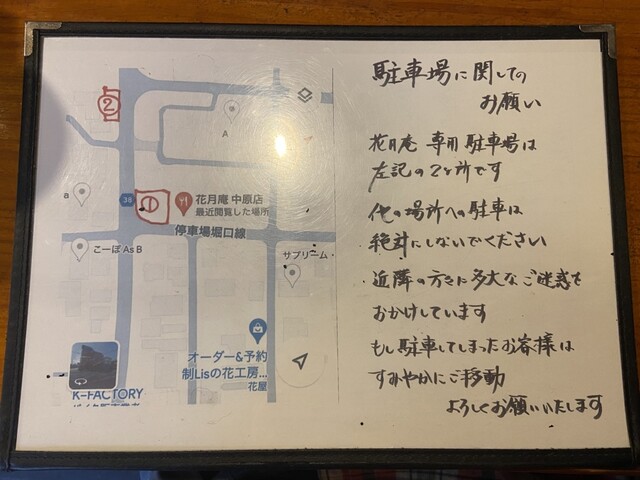 ②
A
B
38
①
花月庵 中原店
最近閲覧した場所
停車場堀口線
こーぽ As B
サブリーム・
オーダー&予約
制Lisの花工房...
花屋
K-FACTORY
駐車場に関しての
お願い
花月庵 専用駐車場は
左記の2ヶ所です
他の場所への駐車は
絶対にしないでください
近隣の方々に多大なご迷惑を
おかけしています
もし駐車してしまったお客様は
すみやかにご移動
よろしくお願いいたします